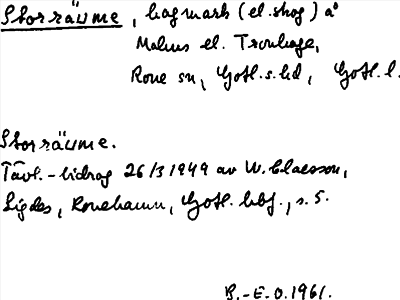 Storräume, hagmark (el. skog) å
Malms el. Tronhage,
Rone sn, Gotl. s. hd, Gotl. l.
Storräume.
Tävl.-bidrag 26/3 1949 av W. Claesson,
Ligdes, Ronehamn, Gotl. hbf., s. 5.
B.-E. O. 1961.